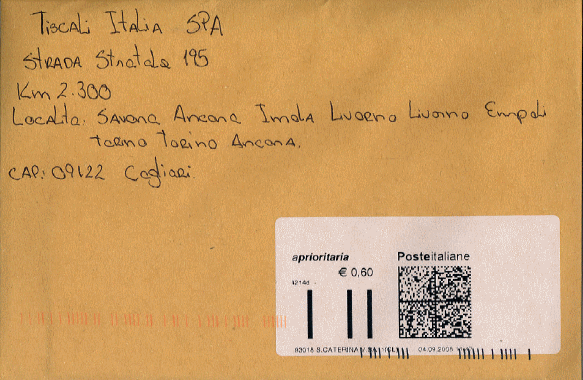 Tiscali Italia SPA
STRADA Statale 195
Km 2.300
Località: SAVONA Ancona Imola Livorno Livorno Empoli
Torino Torino Ancona.
CAP: 09122 Cagliari
aprioritaria
Posteitaliane
€ 0,60